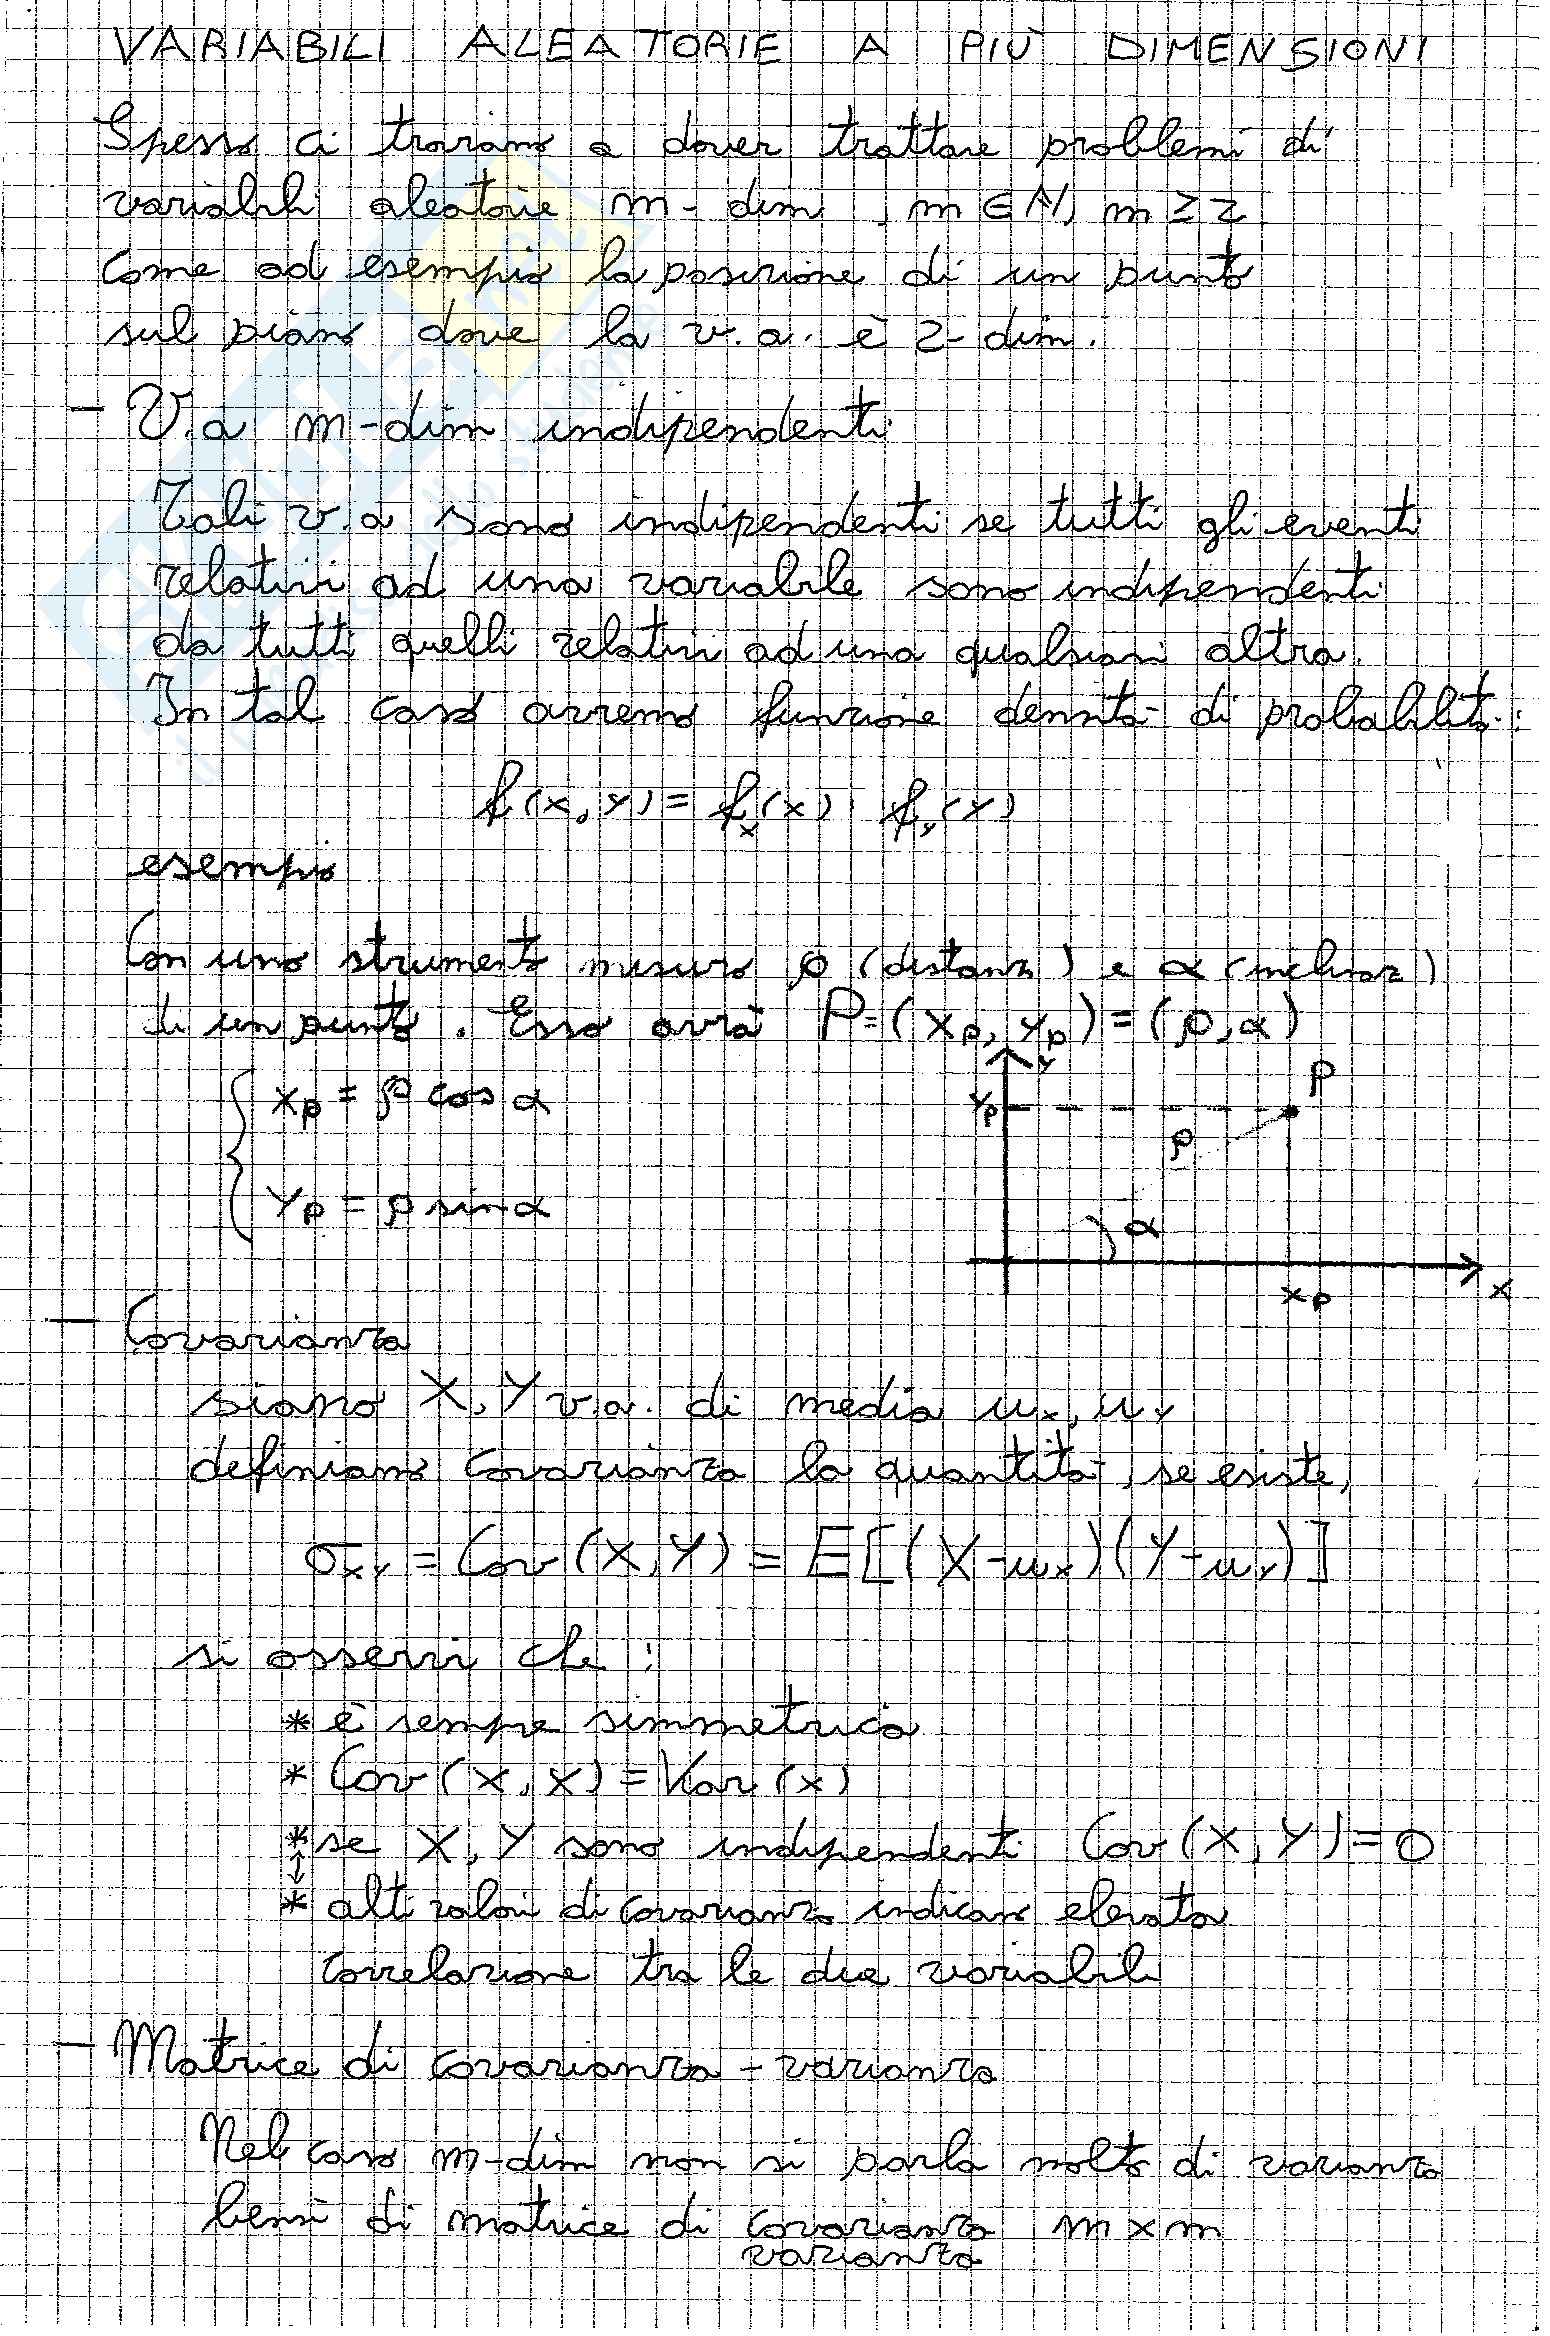 VARIABILI ALEATORIE A PIÙ DIMENSIONI
Spesso ci troviamo a dover trattare problemi di
variabili aleatorie m-dim, m ∈ N, m ≥ 2
come ad esempio la posizione di un punto
sul piano dove la v.a. è 2-dim.
- V.a m-dim indipendenti
Tali v.a sono indipendenti se tutti gli eventi
relativi ad una variabile sono indipendenti
da tutti quelli relativi ad una qualsiasi altra.
In tal caso avremo funzione densità di probabilità:
f(x,y) = fx(x) · fy(y)
esempio
Con uno strumento misuro ρ (distanz) e α (inclinaz)
di un punto. Esso avrà P=(xp,yp)=(ρ,α)
xp = ρ cos α
yp = ρ sin α
y
P
yp
ρ
α
xp
x
- Covarianza
siano X,Y v.a. di media μx, μy
definiamo covarianza la quantità, se esiste,
σxy = Cov(X,Y) = E[(X-μx)(Y-μy)]
si osservi che:
* è sempre simmetrica
* Cov(X,X) = Var(x)
* se X,Y sono indipendenti Cov(X,Y)=0
↕
* alti valori di covarianza indicano elevata
correlazione tra le due variabili
- Matrice di covarianza - varianza
Nel caso m-dim non si parla molto di varianza
bensì di matrice di covarianza m×m
varianza